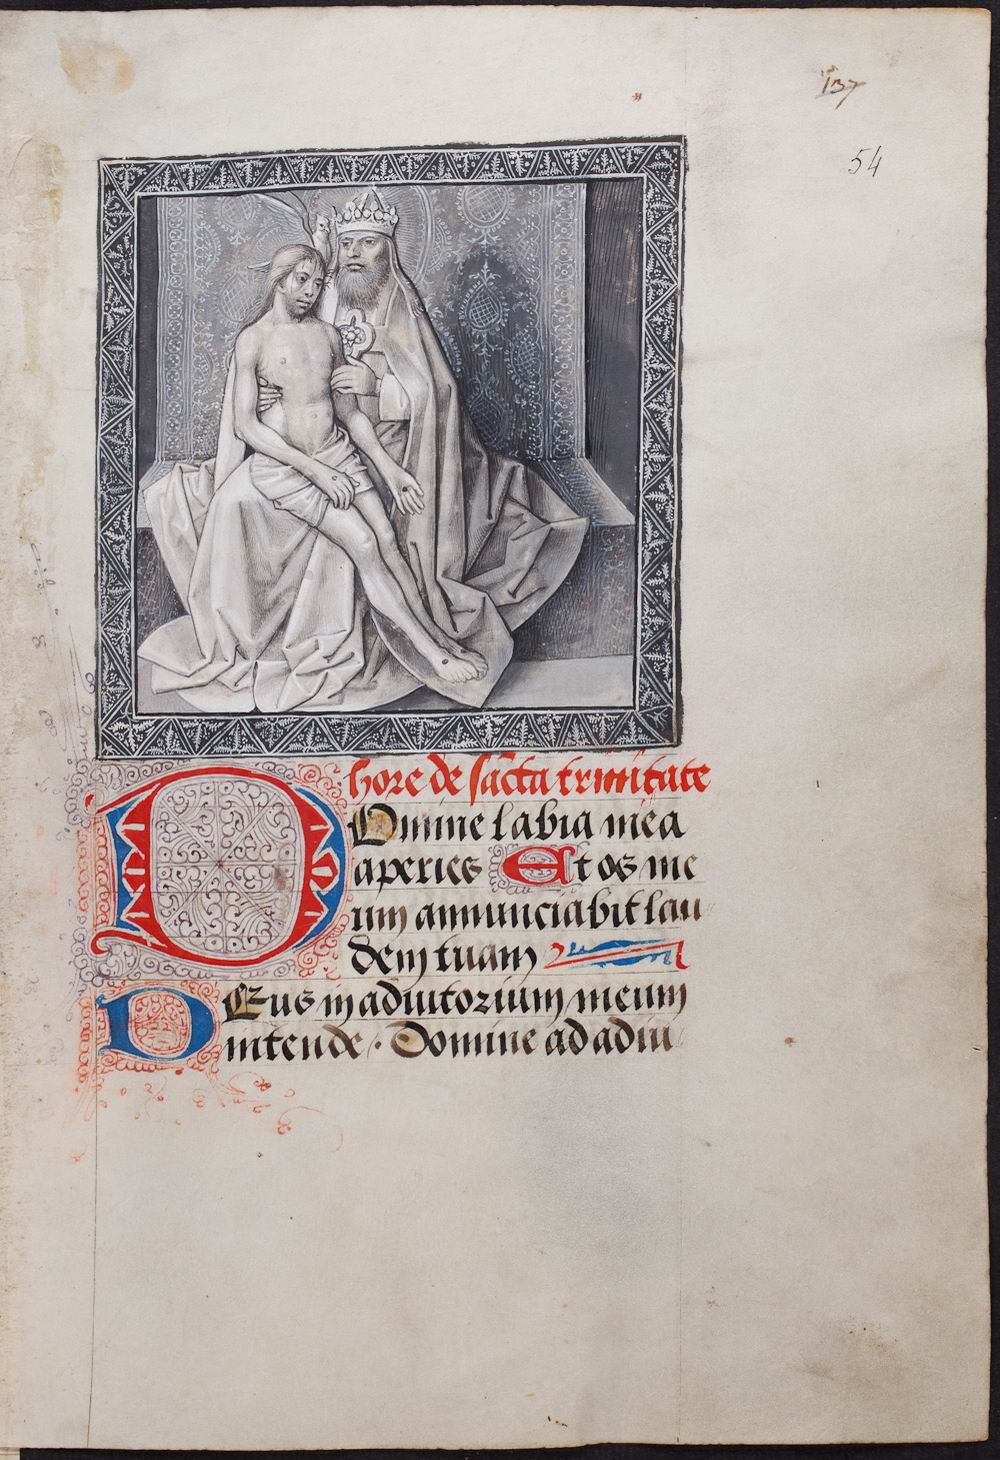 137
54
hore de sācta trinitate
Domine labia mea
aperies Et os me
um annunciabit lau
dem tuam
Deus in adiutorium meum
intende · Domine ad adiu